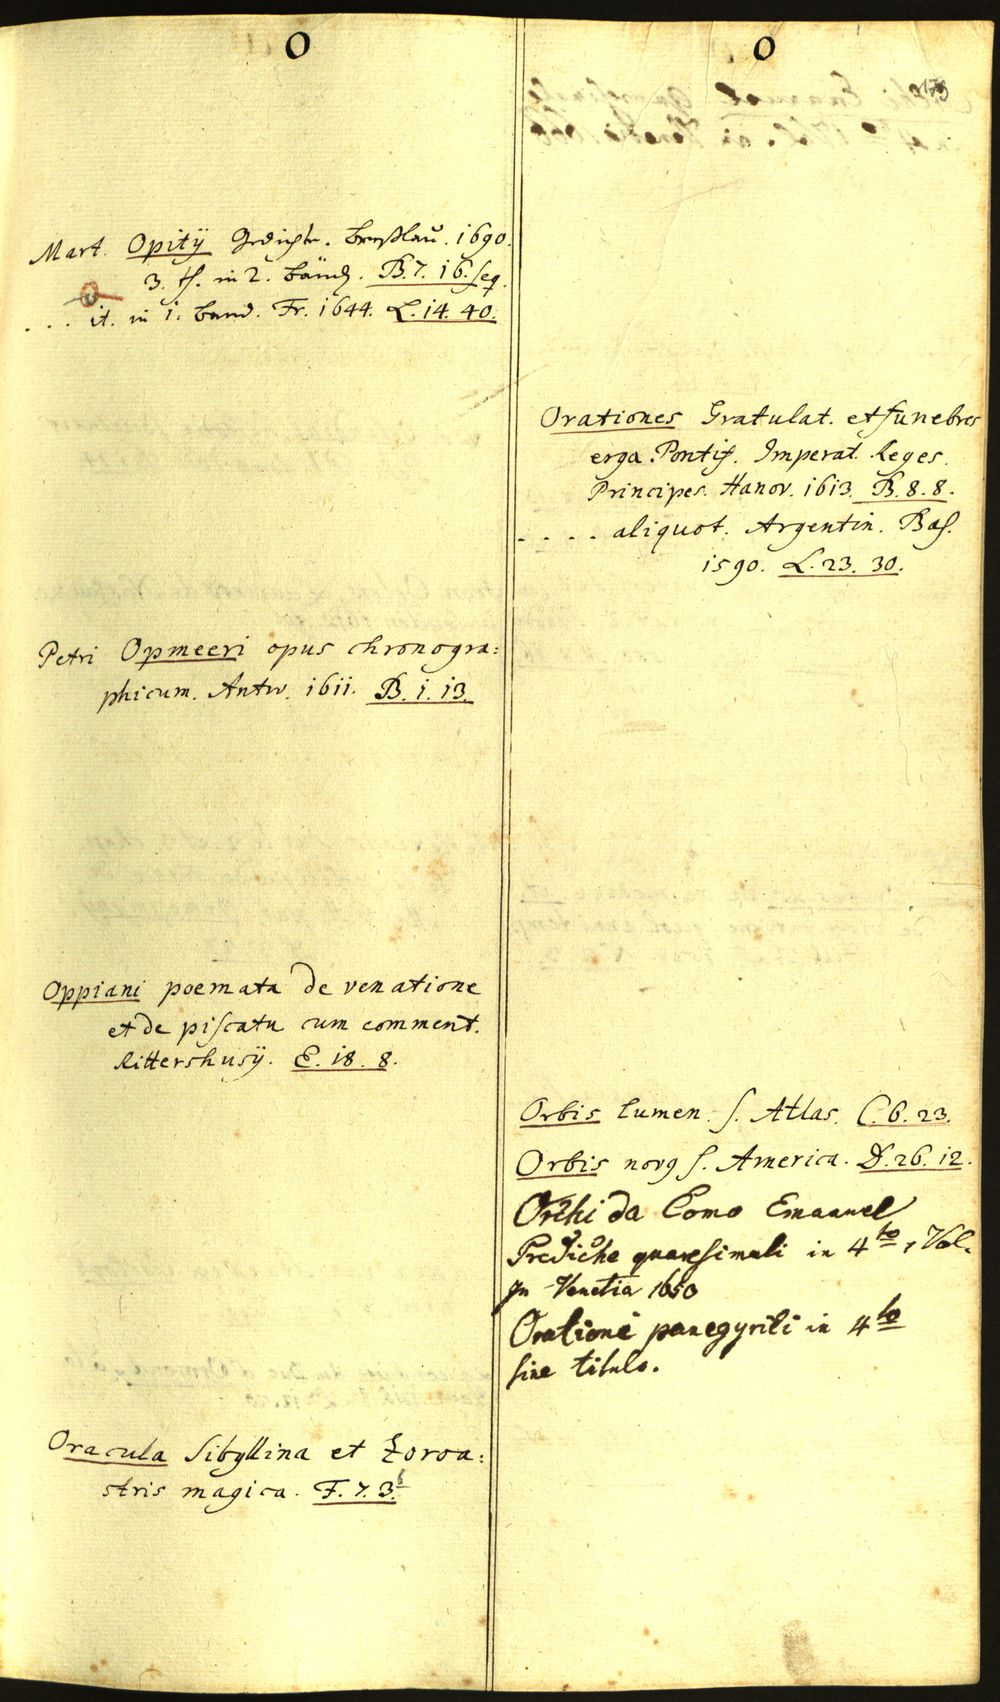 O
Mart. Opitij Gedichte. Breßlau. 1690.
3. th. in 2. Bänd. B. 7. 16. seq.
. . . it. in 1. Band. Fr. 1644. L. 14. 40.
Petri Opmeeri opus chronogra:
phicum. Antw. 1611. B. 1. 13.
Oppiani poemata de venatione
et de piscatu cum comment.
Rittershusij. E. 18. 8.
Oracula Sibyllina et Zoroa:
stris magica. F. 7. 3. b
O
Orationes Gratulat. et funebres
erga Pontif. Imperat. Reges.
Principes. Hanov. 1613. B. 8. 8.
. . . . aliquot. Argentin. Bas.
1590. L. 23. 30.
Orbis lumen. s. Atlas. C. 6. 23.
Orbis novus s. America. D. 26. 12.
Orchi da Como Emanuel
Prediche quaresimali in 4to 1 Vol.
In Venetia 1650
Orationi panegyrici in 4to
sine titulo.